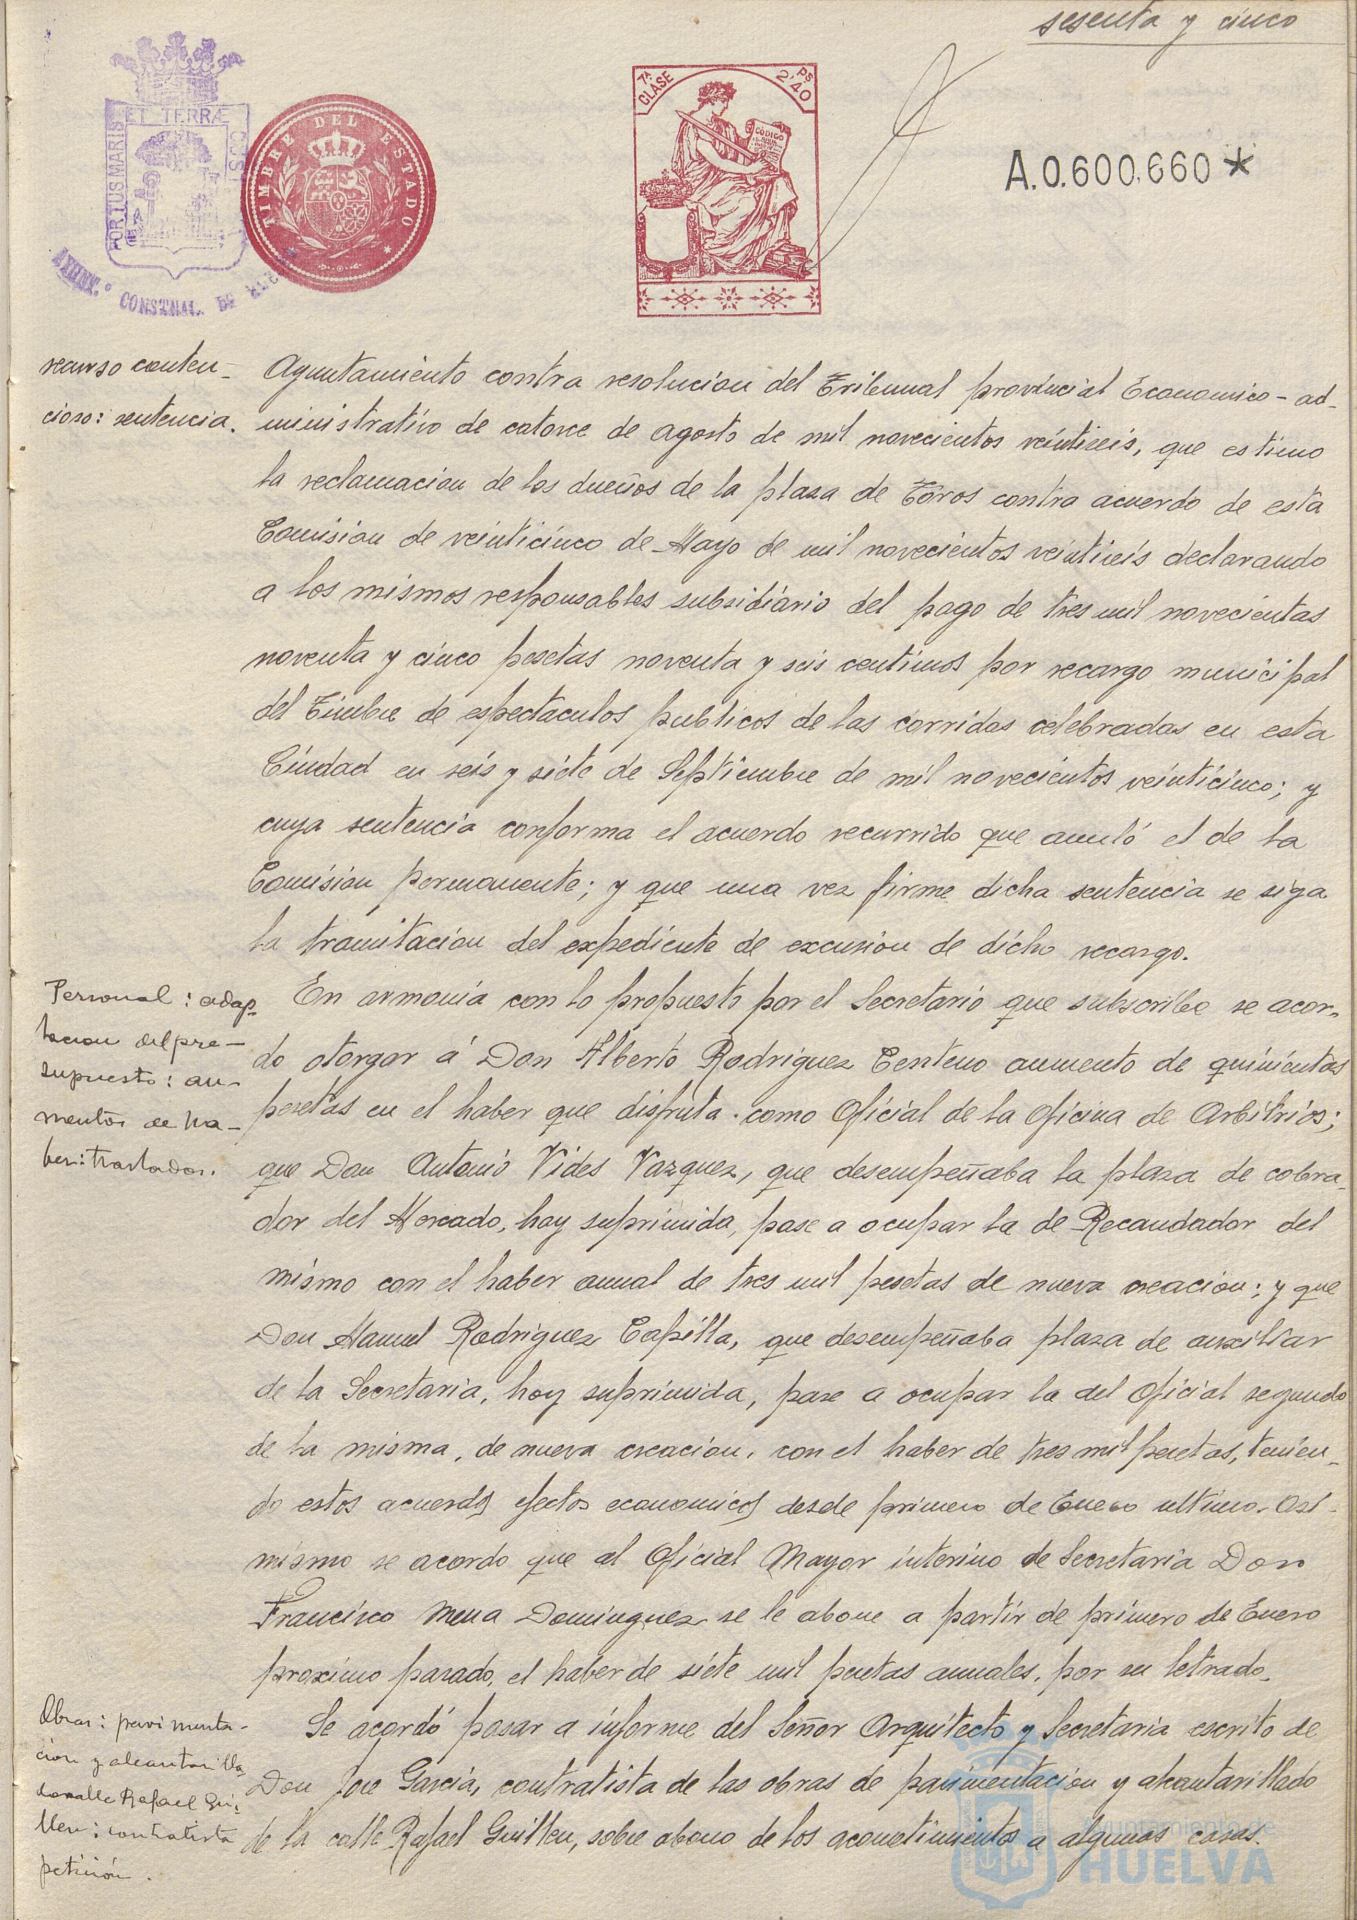 sesenta y cinco
PORTUS MARIS ET TERRÆ CUSTODIA
AYUNT.º CONSTNAL. DE HUELVA
TIMBRE DEL ESTADO
7ª CLASE
2'40 PS
CÓDIGO
A.0.600.660*
recurso conten-
cioso: sentencia.
Ayuntamiento contra resolucion del Tribunal provincial Economico-ad-
ministrativo de catorce de agosto de mil novecientos veintiseis, que estimo
la reclamacion de los dueños de la plaza de Toros contra acuerdo de esta
Comision de veinticinco de Mayo de mil novecientos veintiseis declarando
a los mismos responsables subsidiario del pago de tres mil novecientas
noventa y cinco pesetas noventa y seis centimos por recargo municipal
del Timbre de espectaculos publicos de las corridas celebradas en esta
Ciudad en seis y siete de Septiembre de mil novecientos veinticinco; y
cuya sentencia conforma el acuerdo recurrido que anuló el de la
Comision permanente; y que una vez firme dicha sentencia se siga
la tramitacion del expediente de excusion de dicho recargo.
Personal: adap-
tacion del pre-
supuesto: au-
mentos de ha-
ber: traslados.
En armonia con lo propuesto por el Secretario que subscribe se acor-
do otorgar á Don Alberto Rodriguez Centeno aumento de quinientas
pesetas en el haber que disfruta como Oficial de la Oficina de Arbitrios;
que Don Antonio Vides Vazquez, que desempeñaba la plaza de cobra-
dor del Mercado, hoy suprimida, pase a ocupar la de Recaudador del
mismo con el haber anual de tres mil pesetas de nueva creacion; y que
Don Manuel Rodriguez Capilla, que desempeñaba plaza de auxiliar
de la Secretaria, hoy suprimida, pase a ocupar la del Oficial segundo
de la misma, de nueva creacion, con el haber de tres mil pesetas, tenien-
do estos acuerdos efectos economicos desde primero de Enero ultimo. Asi-
mismo se acordo que al Oficial Mayor interino de Secretaria Don
Francisco Mena Dominguez se le abone a partir de primero de Enero
proximo pasado, el haber de siete mil pesetas anuales, por su letrado.
Obras: pavimenta-
cion y alcantarilla-
do calle Rafael Gui-
llen: contratista
petición.
Se acordó pasar a informe del Señor Arquitecto y Secretaria escrito de
Don Jose Garcia, contratista de las obras de pavimentacion y alcantarillado
de la calle Rafael Guillen, sobre abono de los acometimientos a algunas casas.
Ayuntamiento de
HUELVA